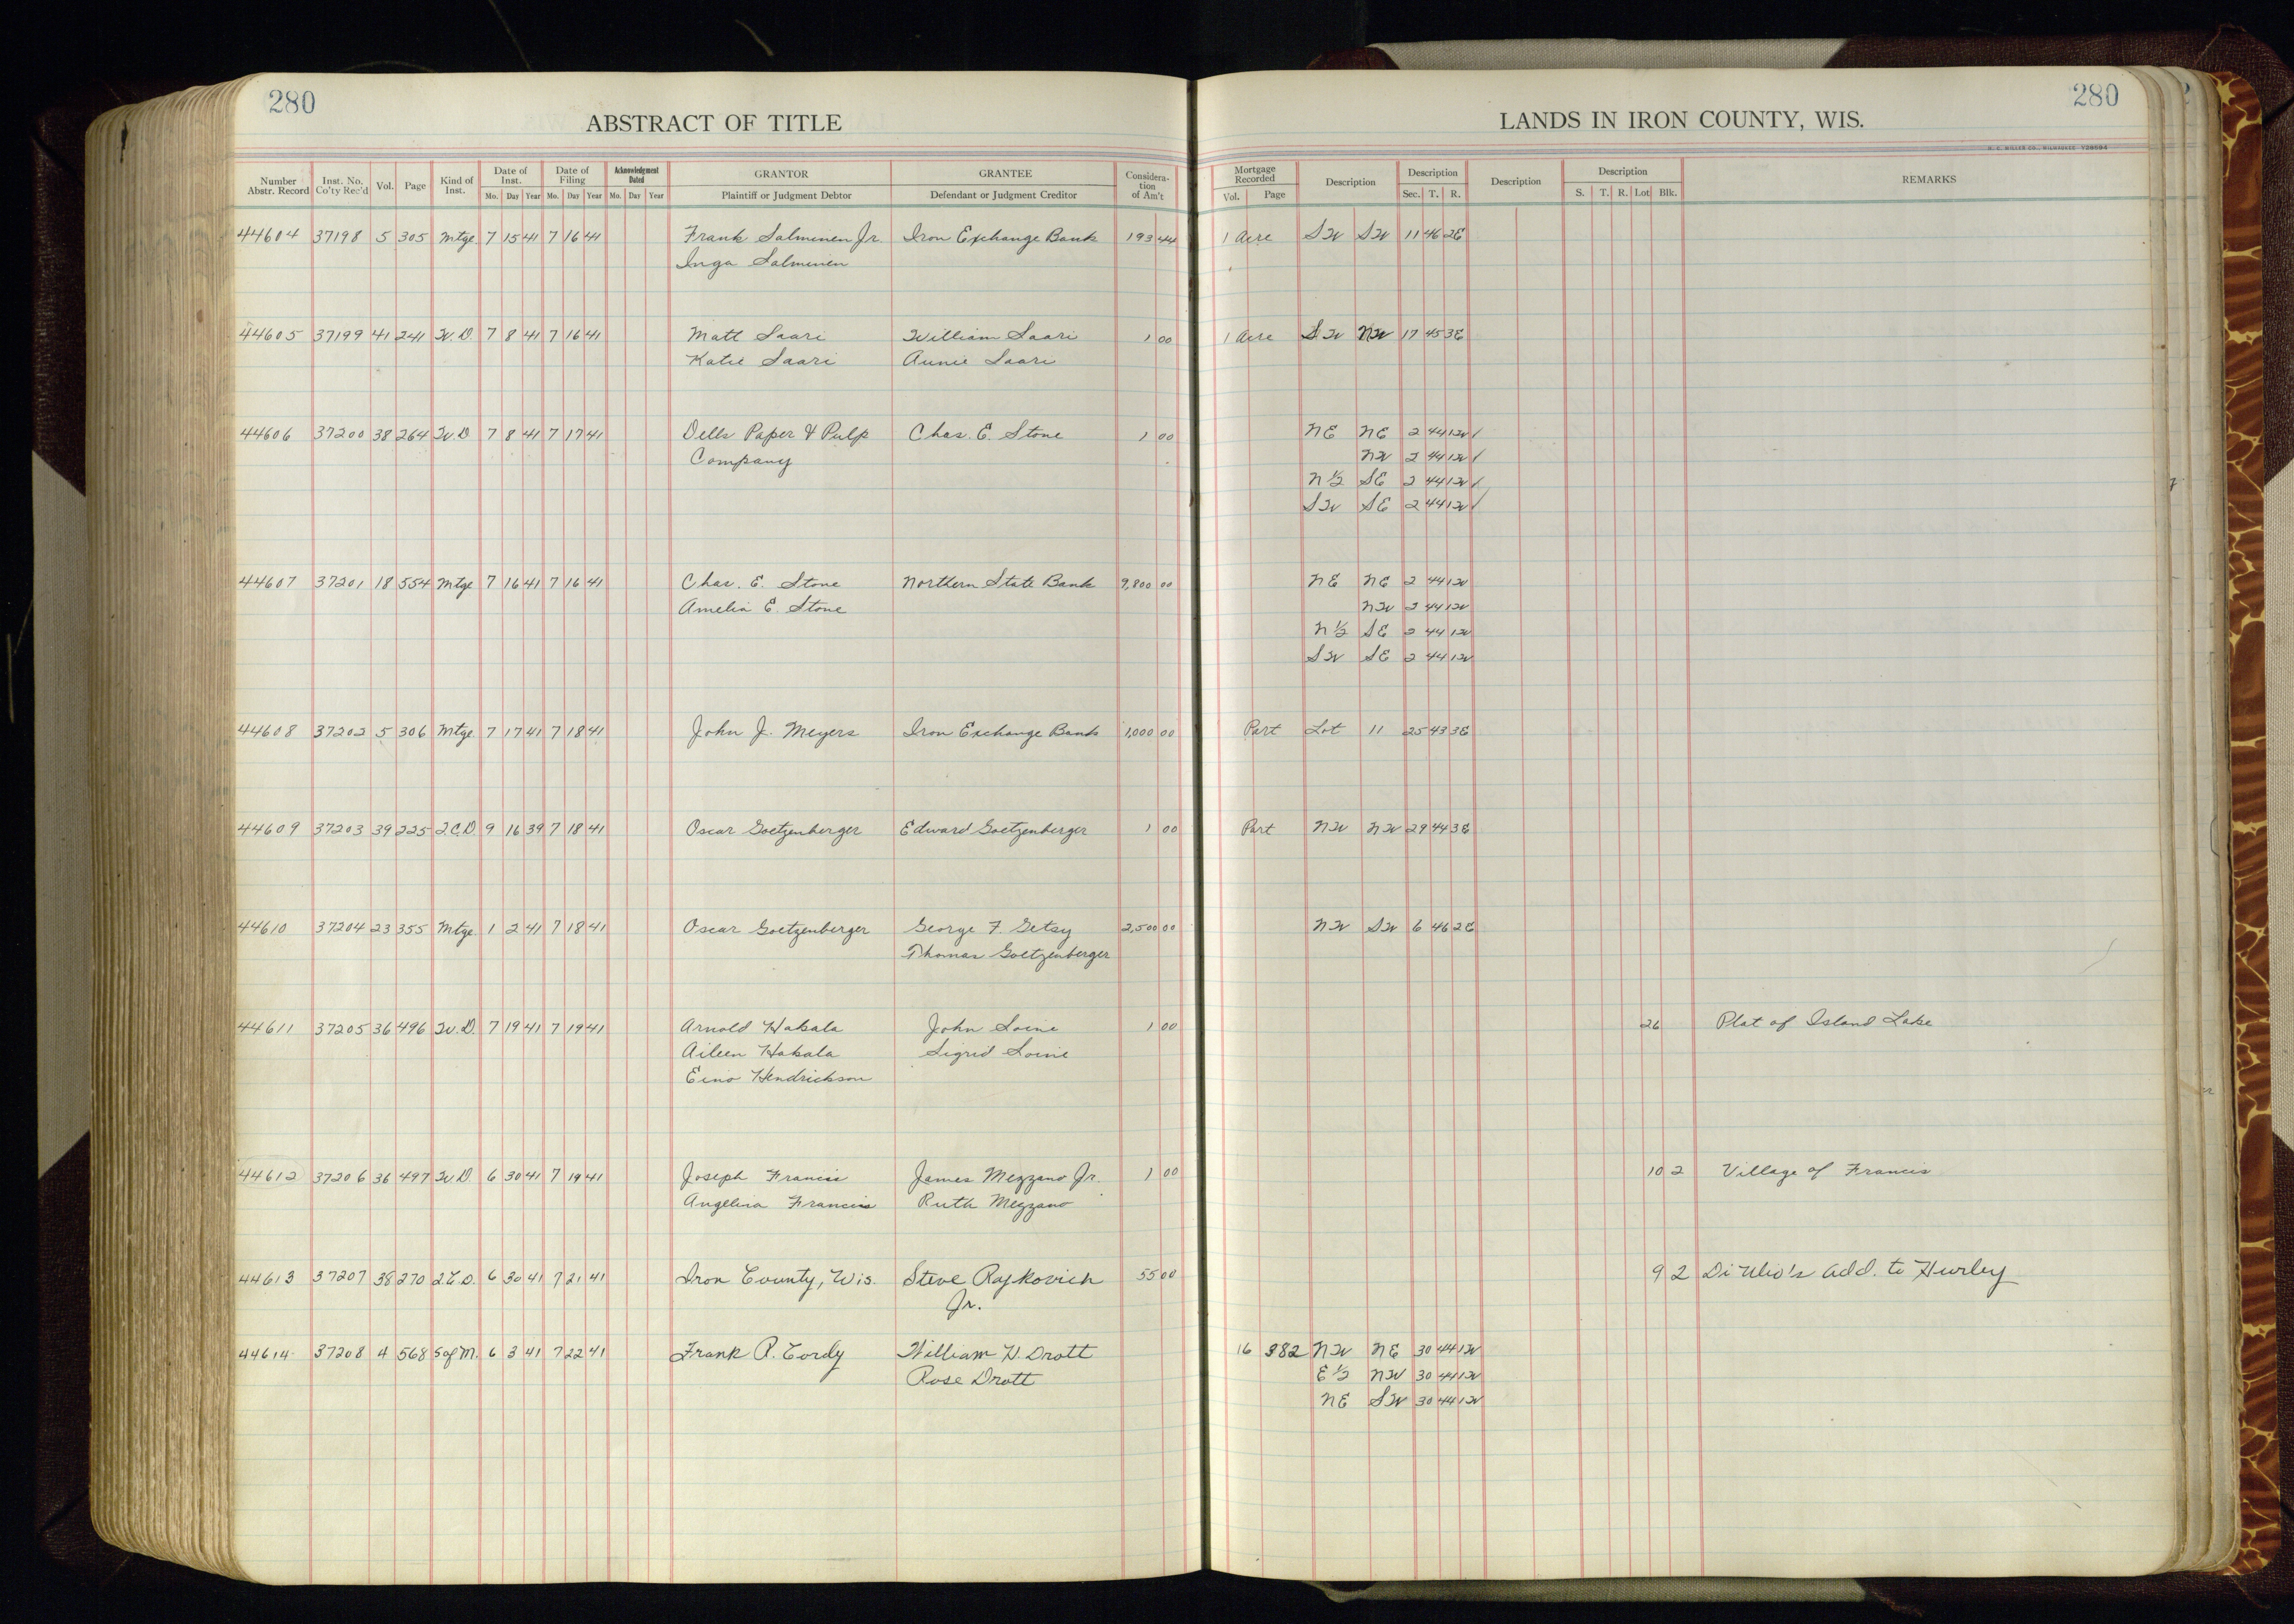 280
280
ABSTRACT OF TITLE
LANDS IN IRON COUNTY, WIS.
Number Abstr. Record Inst. No. Co'ty Rec'd Vol. Page Kind of Inst. Date of Inst. Mo. Day Year Date of Filing Mo. Day Year Acknowledgment Dated Mo. Day Year GRANTOR Plaintiff or Judgment Debtor GRANTEE Defendant or Judgment Creditor Considera-tion of Am't Mortgage Recorded Vol. Page Description Description Sec. T. R. Description Description S. T. R. Lot Blk. REMARKS
44604 37198 5 305 Mtge 7 15 41 7 16 41 Frank Salminen Jr. Iron Exchange Bank 193 44 1 Acre SW SW 11 46 2E
Inga Salminen
44605 37199 41 241 W.D. 7 8 41 7 16 41 Matt Saari William Saari 1 00 1 Acre SW NW 17 45 3E
Katie Saari Annie Saari
44606 37200 38 264 W.D 7 8 41 7 17 41 Dells Paper & Pulp Chas. E. Stone 1 00 NE NE 2 44 1W ✓
Company NW 2 44 1W ✓
N ½ SE 2 44 1W ✓
SW SE 2 44 1W ✓
44607 37201 18 554 Mtge 7 16 41 7 16 41 Chas. E. Stone Northern State Bank 9,800 00 NE NE 2 44 1W
Amelia E. Stone NW 2 44 1W
N ½ SE 2 44 1W
SW SE 2 44 1W
44608 37202 5 306 Mtge. 7 17 41 7 18 41 John J. Meyers Iron Exchange Bank 1,000 00 Part Lot 11 25 43 3E
44609 37203 39 225 Q.C.D. 9 16 39 7 18 41 Oscar Goetzenberger Edward Goetzenberger 1 00 Part NW NW 29 44 3E
44610 37204 23 355 Mtge. 1 2 41 7 18 41 Oscar Goetzenberger George F. Getsy 2,500 00 NW SW 6 46 2E
Thomas Goetzenberger
44611 37205 36 496 W.D. 7 19 41 7 19 41 Arnold Hakala John Soine 1 00 26 Plat of Island Lake
Aileen Hakala Sigrid Soine
Eino Hendrickson
44612 37206 36 497 W.D. 6 30 41 7 19 41 Joseph Francis James Mezzano Jr. 1 00 10 2 Village of Francis
Angelina Francis Ruth Mezzano
44613 37207 38 270 Q.C.D. 6 30 41 7 21 41 Iron County, Wis. Steve Rajkovich 55 00 9 2 Di Ulio's Add. to Hurley
Jr.
44614 37208 4 568 S of M. 6 3 41 7 22 41 Frank R. Cordy William H. Drott 16 382 NW NE 30 44 1W
Rose Drott E ½ NW 30 44 1W
NE SW 30 44 1W